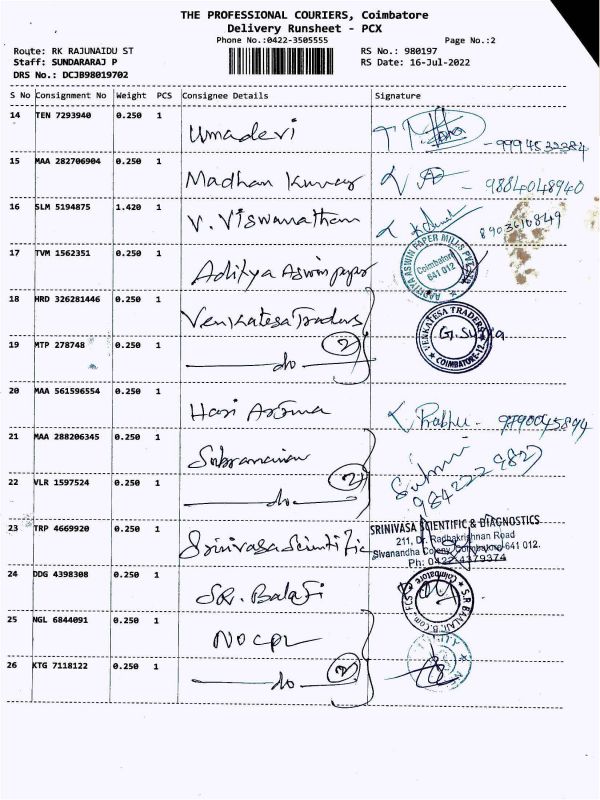 THE PROFESSIONAL COURIERS, Coimbatore
Delivery Runsheet - PCX
Phone No.:0422-3505555 Page No.:2
Route: RK RAJUNAIDU ST RS No.: 980197
Staff: SUNDARARAJ P RS Date: 16-Jul-2022
DRS No.: DCJB98019702
S No Consignment No Weight PCS Consignee Details Signature
14 TEN 7293940 0.250 1 Umadevi
15 MAA 282706904 0.250 1 Madhan Kumar - 9884048940
16 SLM 5194875 1.420 1 V. Viswanathan 8903610849
17 TVM 1562351 0.250 1 Aditya Aswin paper
AADITYA ASWIN PAPER MILLS PVT LTD
Coimbatore
641 012
18 HRD 326281446 0.250 1 Venkatesa Traders
VENKATESA TRADERS
COIMBATORE-12
G. Surya
19 MTP 278748 0.250 1 do 2
20 MAA 561596554 0.250 1 Hari Prabhu - 9790045894
21 MAA 288206345 0.250 1 Subramanian
22 VLR 1597524 0.250 1 do 2
23 TRP 4669920 0.250 1 Srinivasa Scientific
SRINIVASA SCIENTIFIC & DIAGNOSTICS
211, Dr. Radhakrishnan Road
Sivanandha Colony, Coimbatore-641 012.
Ph: 0422-4379374
24 DDG 4398308 0.250 1 S.R. Balaji
S.R. BALAJI, B.Com., FCS
Coimbatore
25 NGL 6844091 0.250 1 NOCPL
26 KTG 7118122 0.250 1 do 2